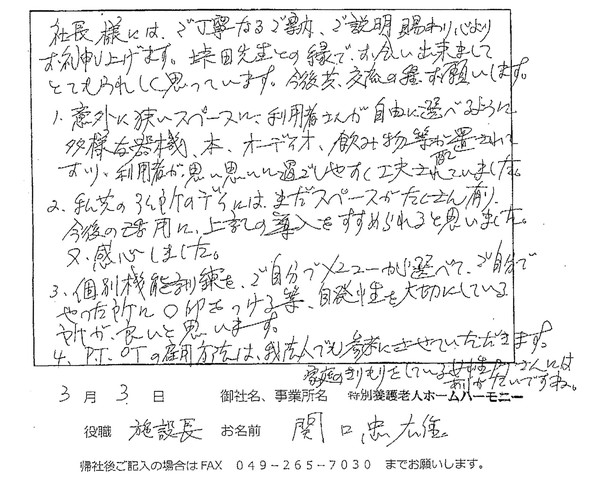 社長様には、ご丁寧なるご案内、ご説明賜わり心より
お礼申し上げます。 田先生との縁で、お会い出来まして
とてもうれしく思っています。今後共、交流の程お願いします。
1. 意外に狭いスペースに、利用者さんが自由に選べるように
多様な器械、本、オーディオ、飲み物等が配置されて
おり、利用者が思い思いに過ごしやすく工夫されていました。
2. 私共の のデイには、まだスペースがたくさん有り、
今後の活用に、上記の導入をすすめられると思いました。
又、感心しました。
3. 個別機能訓練を、ご自分でメニューから選べて、ご自分で
やった所に〇印をつける等、自発性を大切にしている
所が、良いと思います。
4. P.T、OTの雇用方法は、我法人でも参考にさせていただきます。
家庭のきりもりをしている女性 さんには
ありがたいですね。
3 月 3 日 御社名、事業所名 特別養護老人ホームハーモニー
役職 施設長 お名前 関口忠
帰社後ご記入の場合はFAX 049-265-7030 までお願いします。